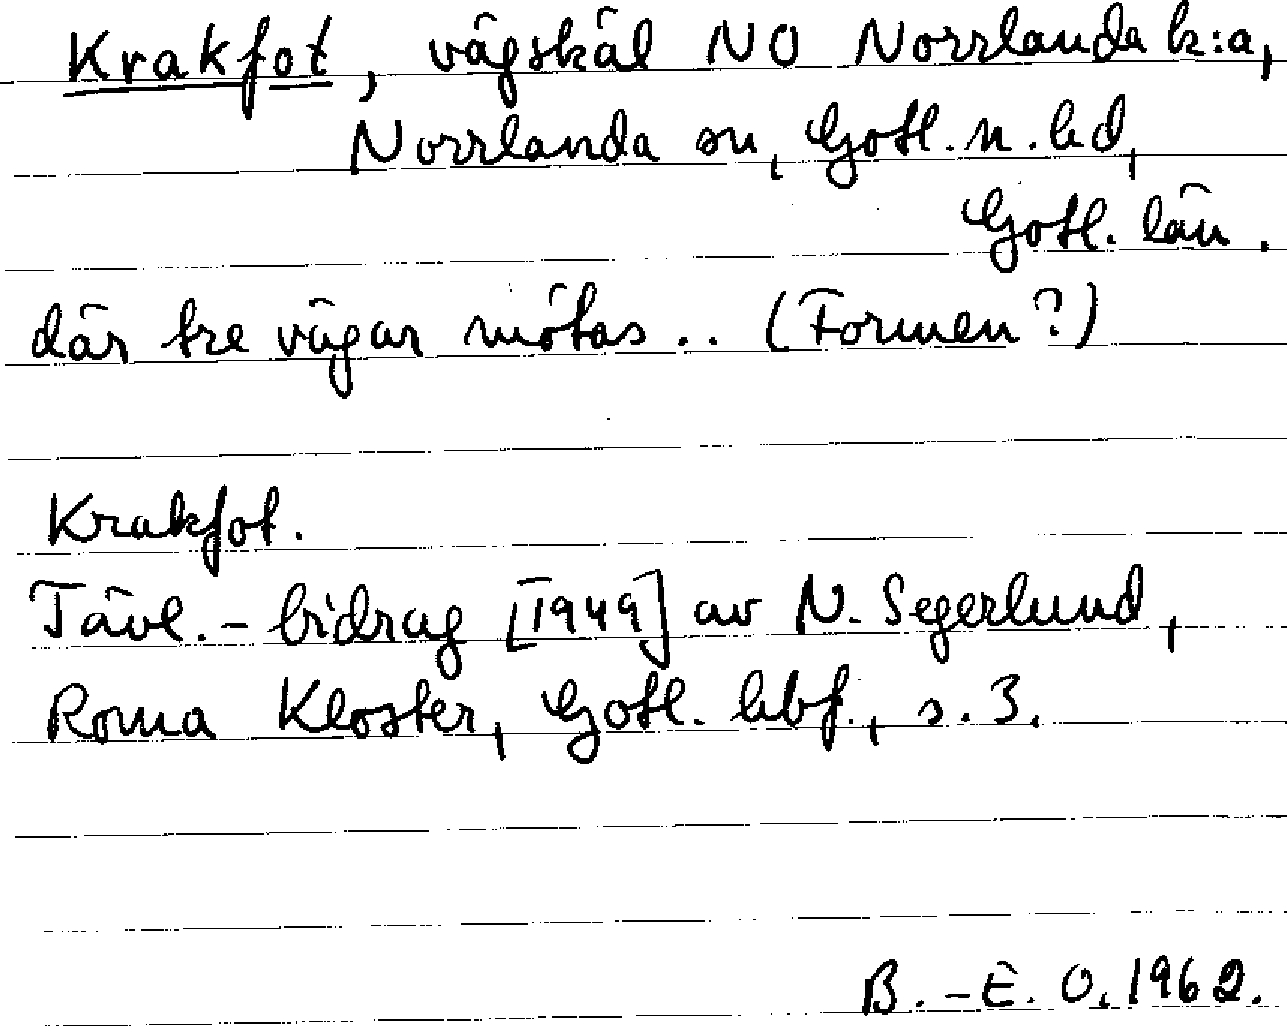 Krakfot, vägskäl NO Norrlanda k:a,
Norrlanda sn, Gotl. n. hd,
Gotl. län.
där tre vägar mötas .. (Formen?)
Krakfot.
Tävl.-bidrag [1949] av N. Segerlund,
Roma Kloster, Gotl. hbf., s. 3.
B.-E. O. 1962.